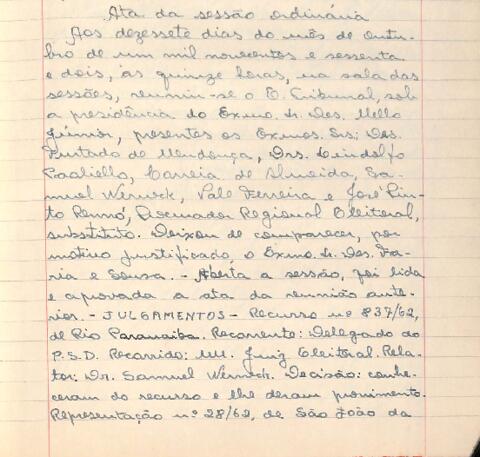 Ata da sessão ordinária
Aos dezessete dias do mês de outu-
bro de um mil novecentos e sessenta
e dois, às quinze horas, na sala das
sessões, reuniu-se o E. Tribunal, sob
a presidência do Exmo. Sr. Des. Mello
Júnior, presentes os Exmos. Srs: Des.
Furtado de Mendonça, Drs. Lindolfo
Paoliello, Correia de Almeida, Sa-
muel Werneck, Vale Ferreira e José Pin-
to Renno, Procurador Regional Eleitoral,
substituto. Deixou de comparecer, por
motivo justificado, o Exmo. Sr. Des. Fa-
ria e Sousa. - Aberta a sessão, foi lida
e aprovada a ata da reunião ante-
rior. - JULGAMENTOS - Recurso nº 837/62,
de Rio Paranaiba. Recorrente: Delegado do
P.S.D. Recorrido: MM. Juiz Eleitoral. Rela-
tor: Dr. Samuel Werneck. Decisão: conhe-
ceram do recurso e lhe deram provimento.
Representação nº 28/62, de São João da